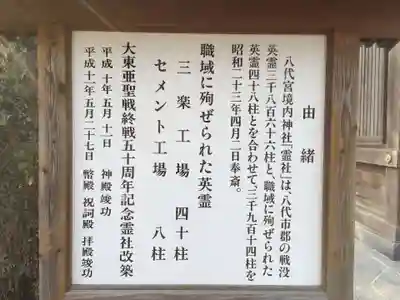 由緒
八代宮境内神社『霊社』は、八代市郡の戦没
英霊三千八百六十六柱と、職域に殉ぜられた
英霊四十八柱とを合わせて、三千九百十四柱を
昭和二十三年四月二日奉斎。
職域に殉ぜられた英霊
三楽工場 四十柱
セメント工場 八柱
大東亜聖戦終戦五十周年記念霊社改築
平成十年五月十一日 神殿竣功
平成十一年五月二十七日 幣殿 祝詞殿 拝殿竣功